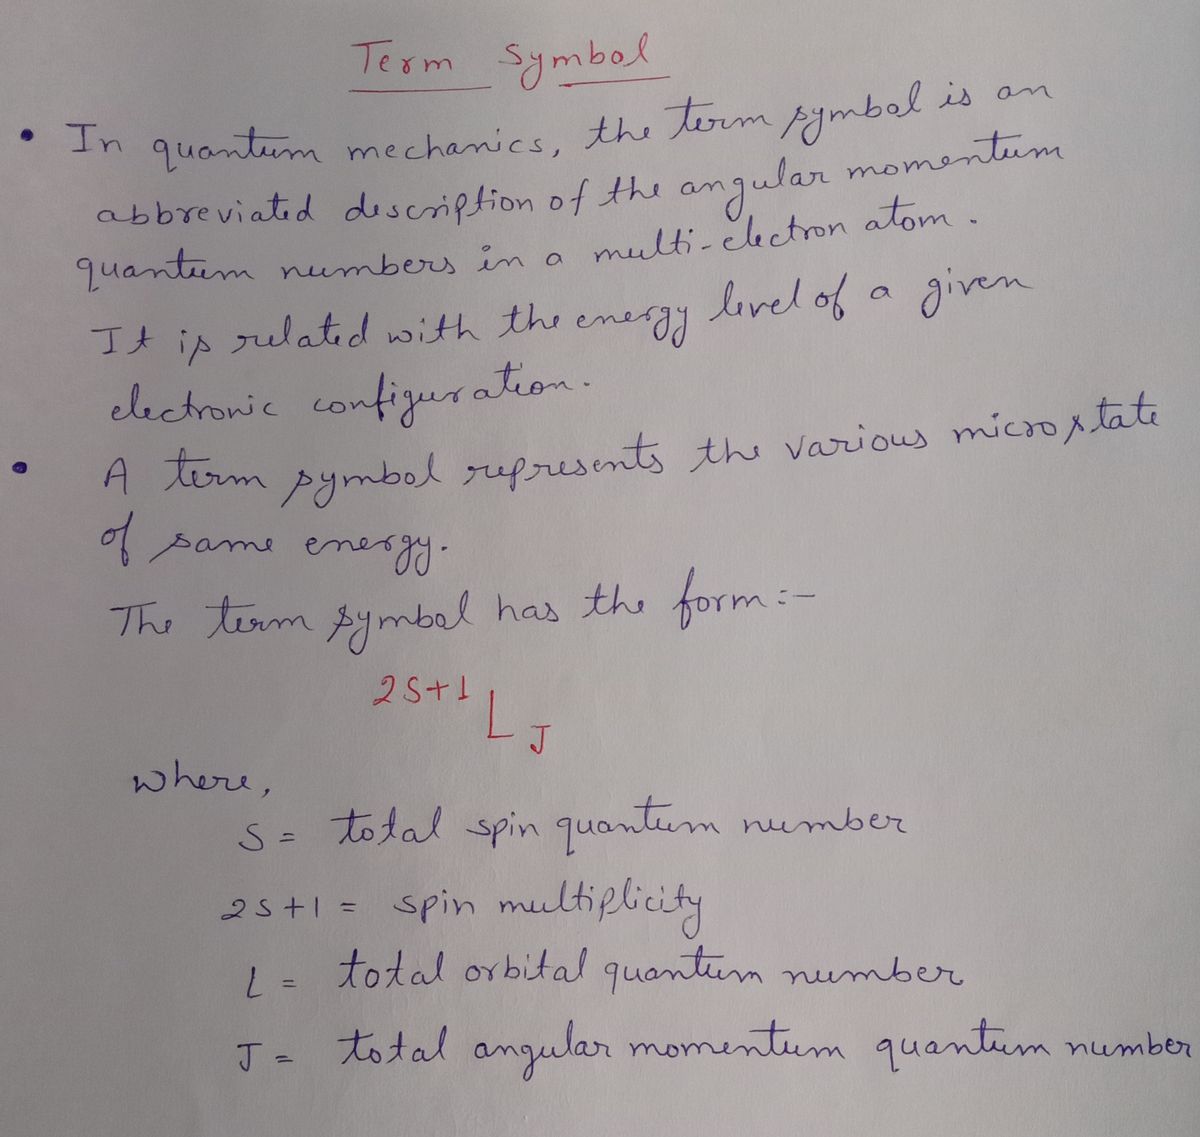 Term Symbol
• In quantum mechanics, the term symbol is an
abbreviated description of the angular momentum
quantum numbers in a multi-electron atom.
It is related with the energy level of a given
electronic configuration.
• A term symbol represents the various microstate
of same energy.
The term symbol has the form:-
2S+1 L J
where,
S = total spin quantum number
2S+1 = spin multiplicity
L = total orbital quantum number
J = total angular momentum quantum number